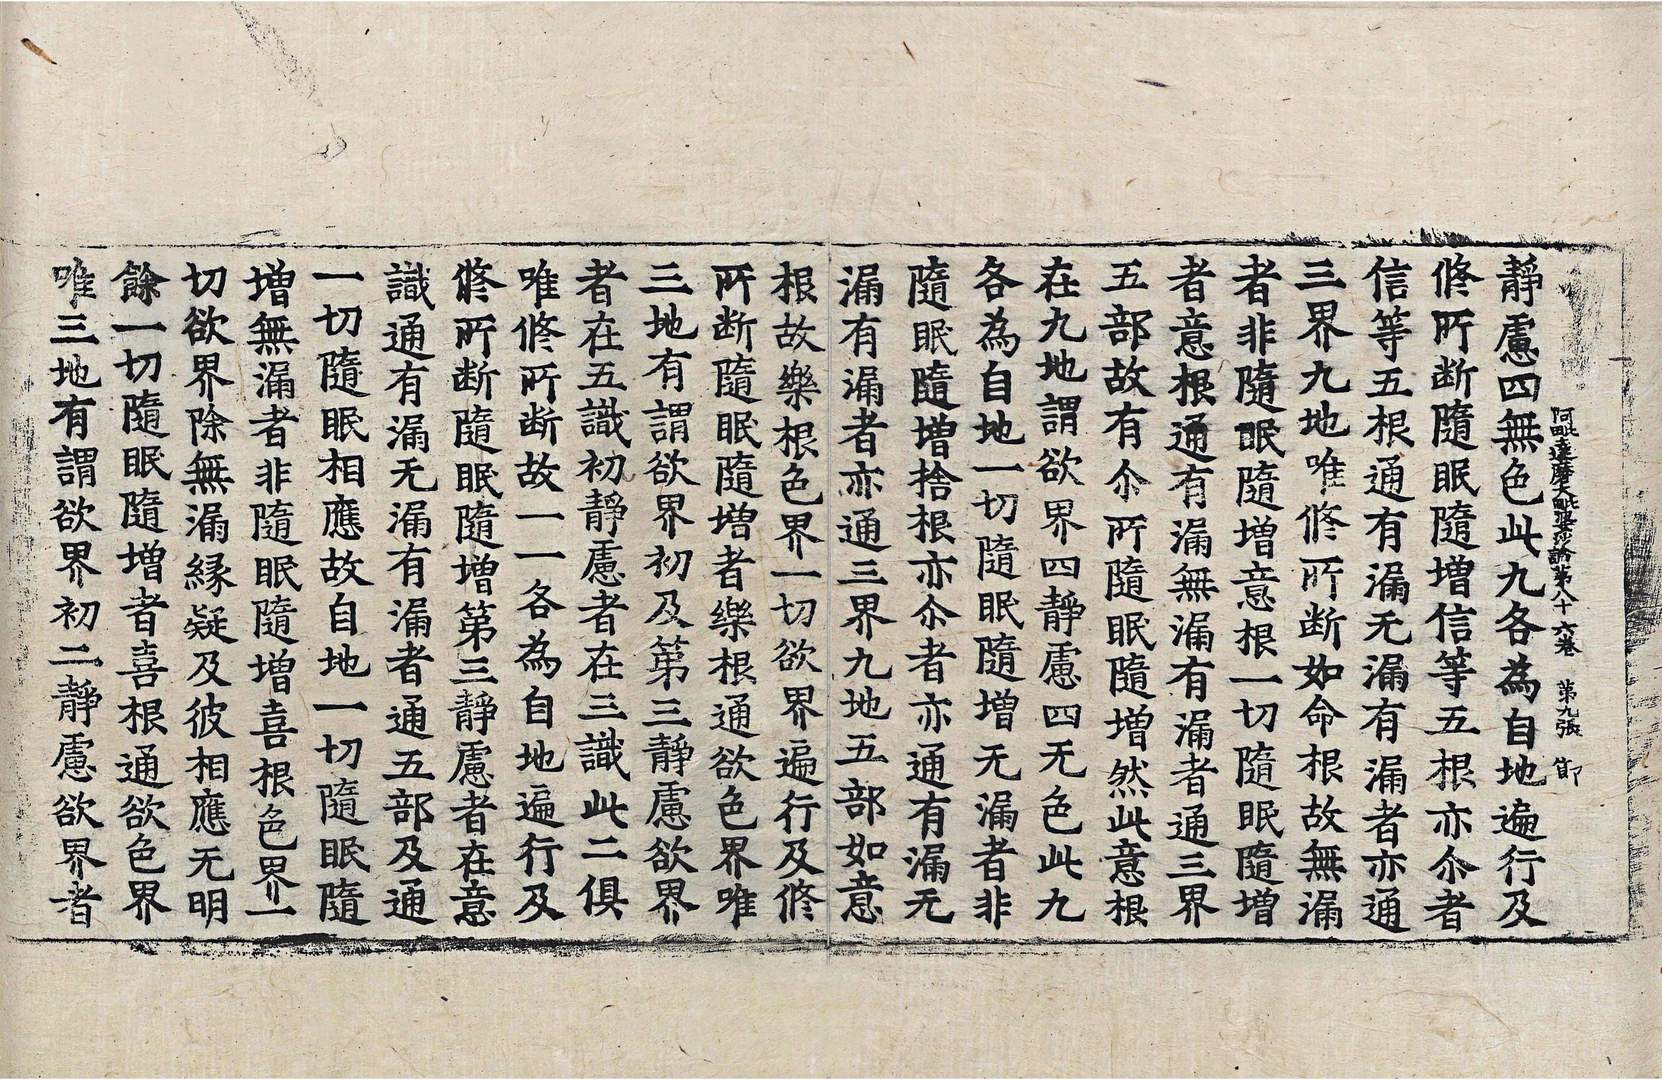 阿毗達磨大毗婆沙論第八十六卷　第九張　節
靜慮四無色此九各為自地遍行及
修所断隨眠隨增信等五根亦尒者
信等五根通有漏无漏有漏者亦通
三界九地唯修所断如命根故無漏
者非隨眠隨增意根一切隨眠隨增
者意根通有漏無漏有漏者通三界
五部故有尒所隨眠隨增然此意根
在九地謂欲界四靜慮四无色此九
各為自地一切隨眠隨增无漏者非
隨眠隨增捨根亦尒者亦通有漏无
漏有漏者亦通三界九地五部如意
根故樂根色界一切欲界遍行及修
所断隨眠隨增者樂根通欲色界唯
三地有謂欲界初及第三靜慮欲界
者在五識初靜慮者在三識此二俱
唯修所断故一一各為自地遍行及
修所断隨眠隨增第三靜慮者在意
識通有漏无漏有漏者通五部及通
一切隨眠相應故自地一切隨眠隨
增無漏者非隨眠隨增喜根色界一
切欲界除無漏緣疑及彼相應无明
餘一切隨眠隨增者喜根通欲色界
唯三地有謂欲界初二靜慮欲界者